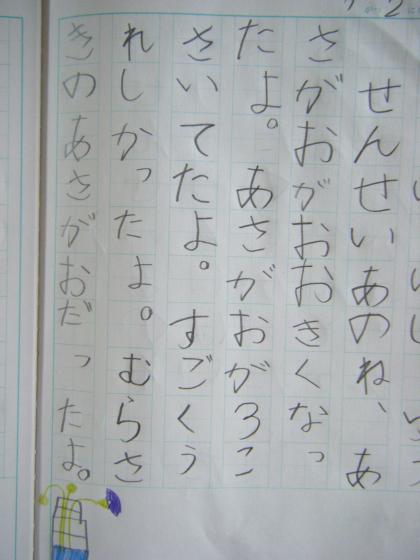 せんせいあのね、あ
さがおがおおきくなっ
たよ。あさがおが3こ
さいてたよ。すごくう
れしかったよ。むらさ
きのあさがおだったよ。